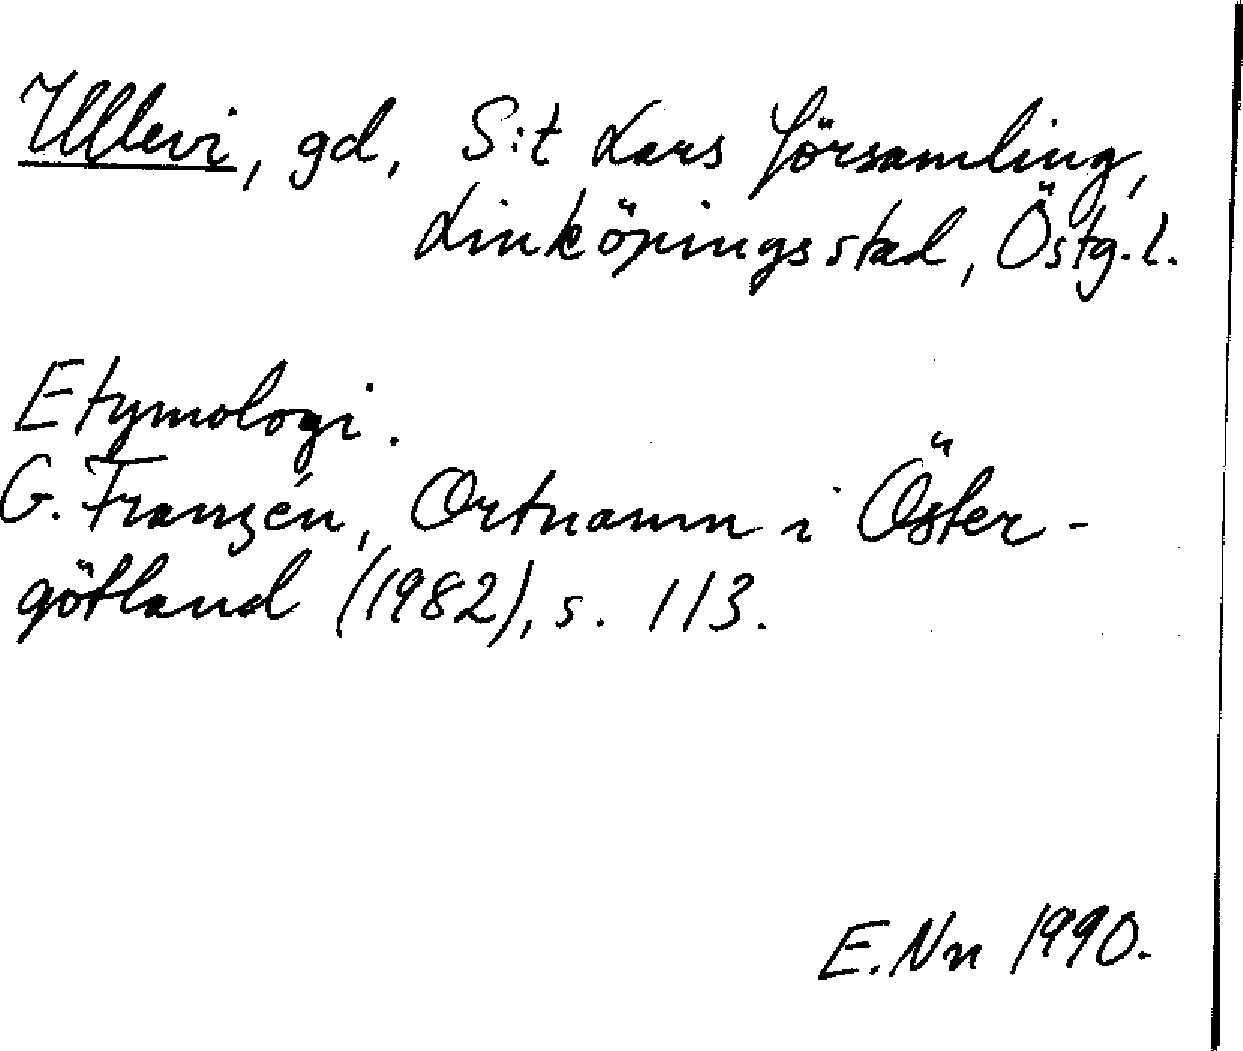 Ullevi, gd, S:t Lars församling,
Linköpings stad, Östg. l.
Etymologi.
G. Franzén, Ortnamn i Öster-
götland (1982), s. 113.
E. Nn 1990.